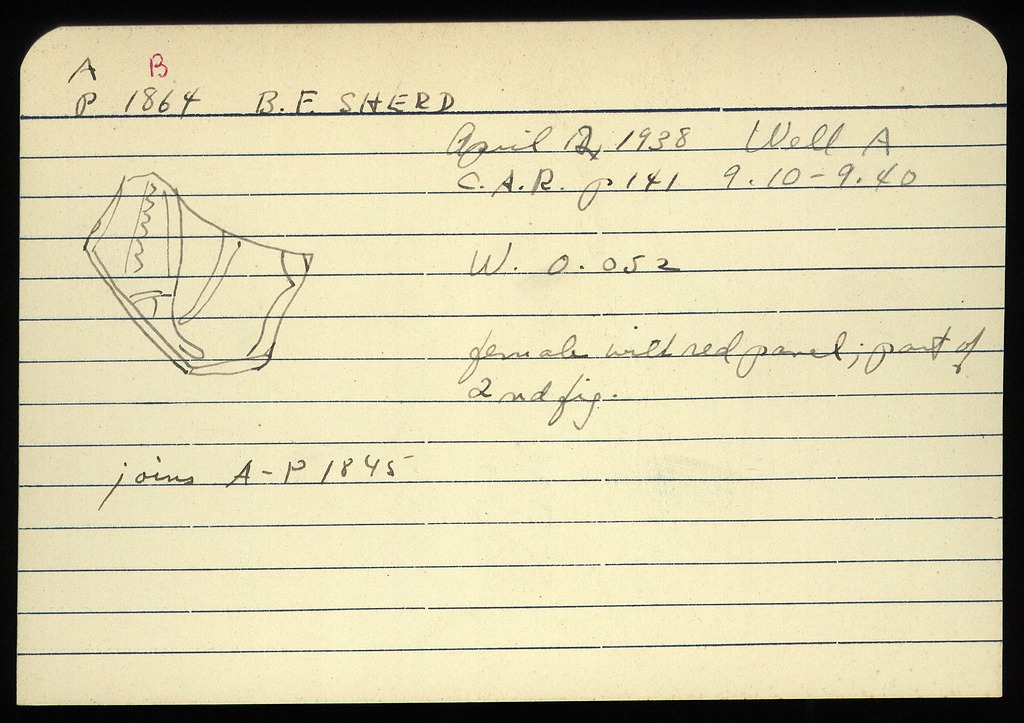 A B
P 1864 B.F. SHERD
April 2, 1938 Well A
C.A.R. p 141 9.10-9.40
W. 0.052
female with red panel; part of
2nd fig.
joins A-P 1845